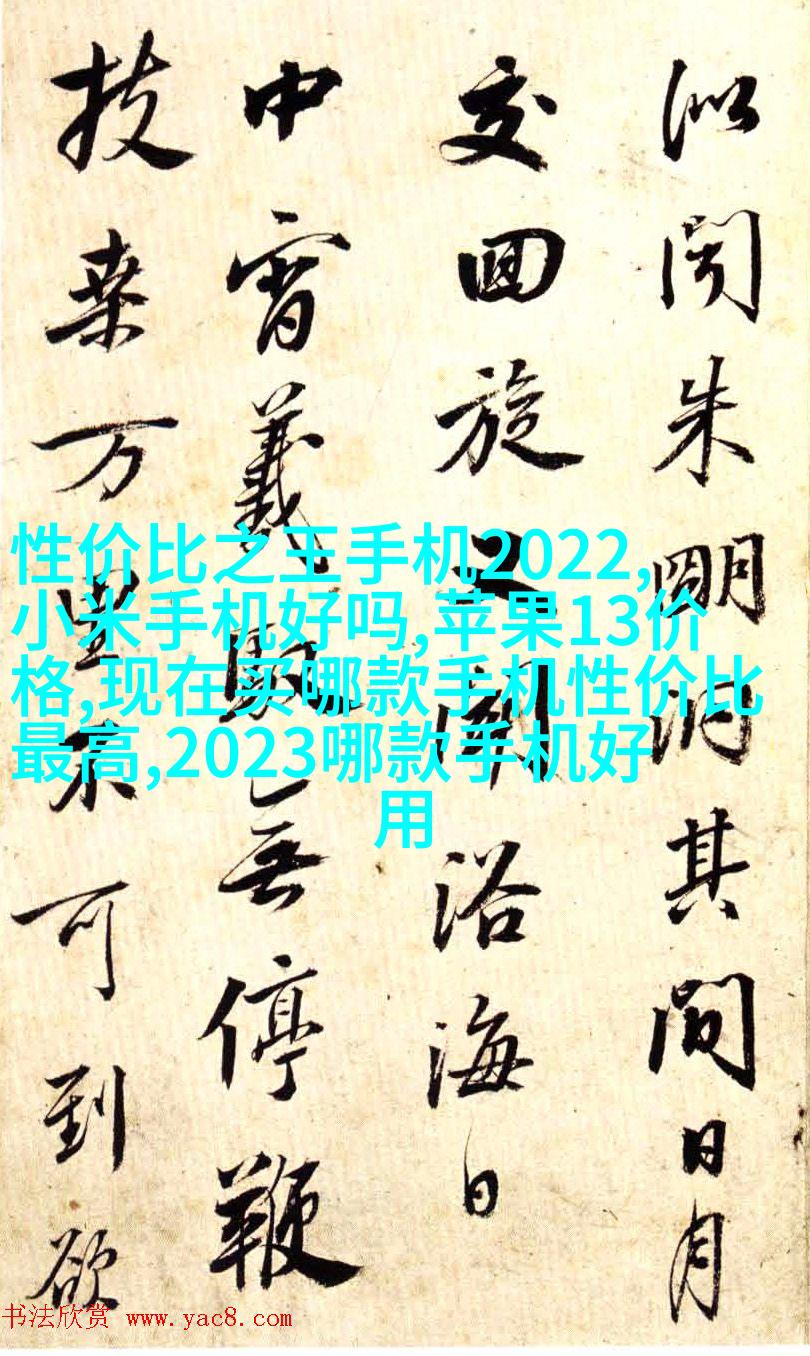 似闻朱明洞其間日月
交回旋又聞浴海日
中宵義馭無停鞭
扶桒万里不可到欲
性价比之王手机2022,
小米手机好吗,苹果13价
格,现在买哪款手机性价比
最高,2023哪款手机好
用
书法欣赏 www.yac8.com